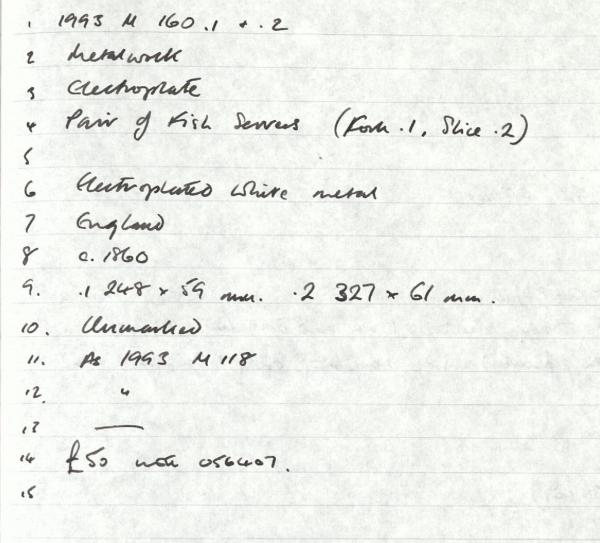 1 1993 M 160 .1 + .2
2 Metalwork
3 Electroplate
4 Pair of Fish Servers (Fork .1, Slice .2)
5
6 Electroplated white metal
7 England
8 c. 1860
9. .1 248 x 59 mm. .2 327 x 61 mm.
10. Unmarked
11. As 1993 M 118
12. "
13 —
14 £50 with 056407.
15